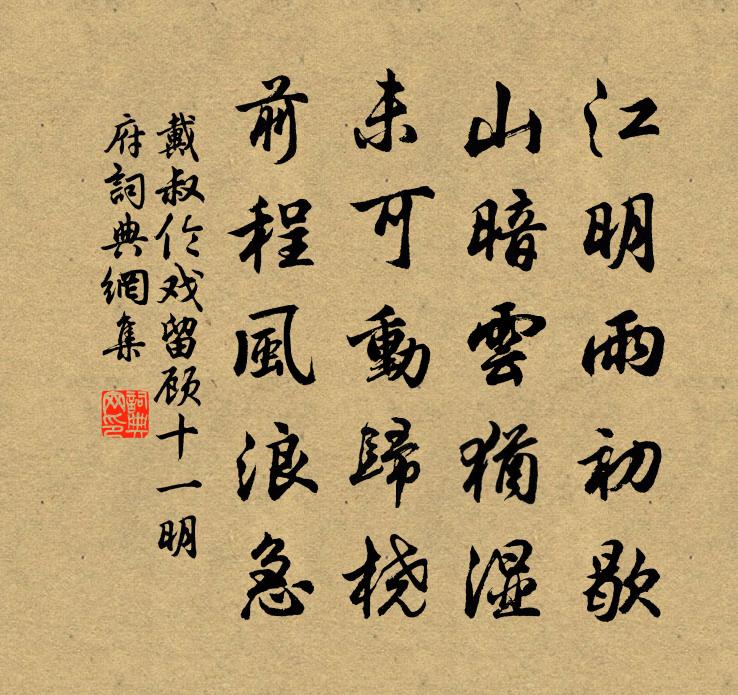 江明雨初歇
山暗雲猶湿
未可動歸桡
前程風浪急
戴叔伦戏留顾十一明
府詞典網集
詞典
网印